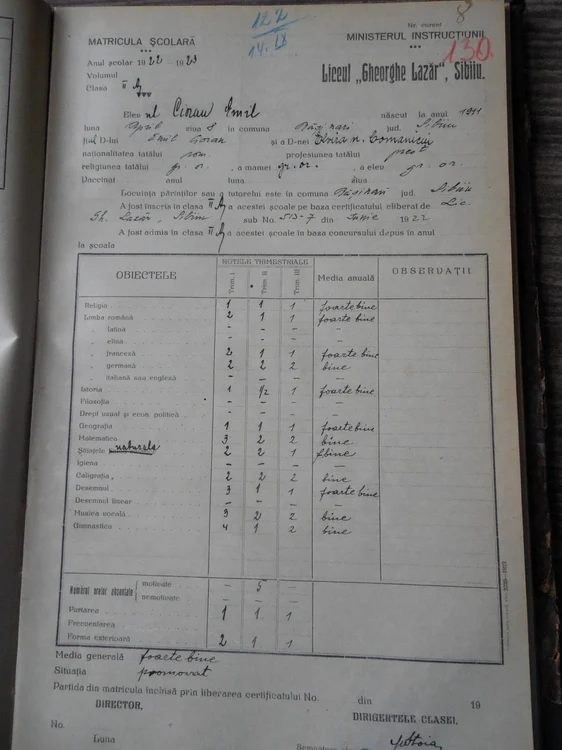 122
14. IX
Nr. curent 8
MATRICULA ȘCOLARĂ
MINISTERUL INSTRUCȚIUNII
130.
Anul școlar 1922 - 1923
Volumul
Liceul „Gheorghe Lazăr", Sibiiu.
Clasa II A
Elevul Cioran Emil născut la anul 1911
luna April ziua 8 în comuna Rășinari jud. Sibiiu
fiul D-lui Emil Cioran și a D-nei Elvira n. Comaniciu
naționalitatea tatălui rom. profesiunea tatălui preot
religiunea tatălui gr. or., a mamei gr. or., a elev gr. or.
Vaccinat anul luna ziua
Locuința părinților sau a tutorelui este în comuna Rășinari jud. Sibiiu
A fost înscris în clasa II A a acestei școale pe baza certificatului eliberat de Lic.
Gh. Lazăr, Sibiiu sub No. 513-7 din Iunie 1922
A fost admis în clasa II A a acestei școale în baza concursului depus în anul
la școala
OBIECTELE NOTELE TRIMESTRIALE Media anuală OBSERVAȚII
Trim. I Trim. II Trim. III
Religia 1 1 1 foarte bine
Limba română 2 1 1 foarte bine
„ latină - - - -
„ elină - - - -
„ franceză 2 1 1 foarte bine
„ germană 2 2 2 bine
„ italiană sau engleză - - - -
Istoria 1 1/2 1 foarte bine
Filosofia - - - -
Drept uzual și econ. politică - - - -
Geografia 1 1 1 foarte bine
Matematica 3 2 2 bine
Științele naturale 2 2 1 bine
Igiena - - - -
Caligrafia 2 2 2 bine
Desemnul 3 1 1 foarte bine
Desemnul linear - - - -
Muzica vocală 3 2 2 bine
Gimnastica 4 1 2 bine
Numărul orelor absentate motivate - 5 -
nemotivate - - -
Purtarea 1 1 1
Frecuentarea
Forma exterioară 2 1 1
Media generală foarte bine
Situația promovat
Partida din matricula închisă prin liberarea certificatului No. din 19
DIRECTOR, DIRIGENTELE CLASEI,
No.
Luna